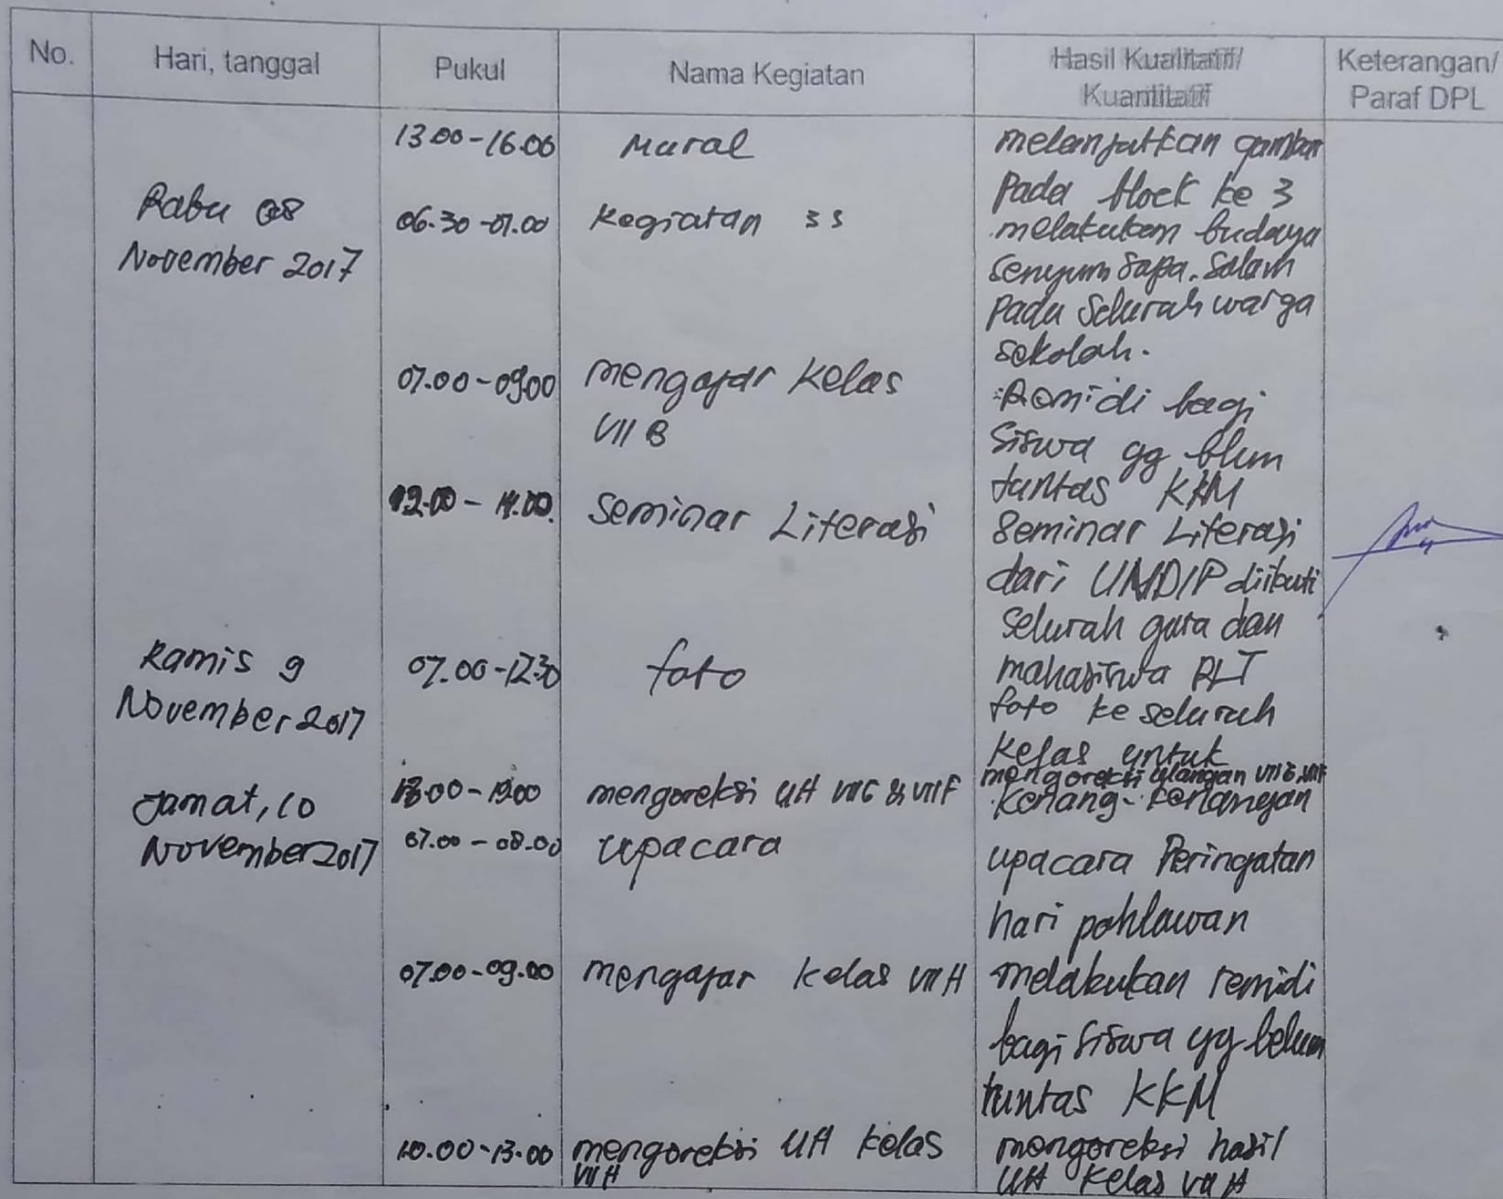 No. Hari, tanggal Pukul Nama Kegiatan Hasil Kualitatif/ Kuantitatif Keterangan/ Paraf DPL
13.00-16.00 Mural melanjutkan gambar
pada block ke 3
Rabu 08 06.30-07.00 Kegiatan 3S melakukan budaya
November 2017 senyum sapa. salam
pada seluruh warga
sekolah.
07.00-09.00 mengajar kelas Remidi bagi
VII B siswa yg blum
tuntas KKM
12.00 - 14.00 Seminar Literasi Seminar Literasi
dari UNDIP diikuti
seluruh guru dan
Kamis 9 07.00-12.30 foto mahasiswa PLT
November 2017 foto ke seluruh
kelas untuk
18.00-19.00 mengoreksi UH VII E & VII F mengoreksi ulangan VII E, VII F
Jumat, 10 kenang-kenangan
November 2017 07.00-08.00 upacara upacara Peringatan
hari pahlawan
07.00-09.00 mengajar kelas VII H melakukan remidi
bagi siswa yg belum
tuntas KKM
10.00-13.00 mengoreksi UH kelas mengoreksi hasil
VII H UH kelas VII H